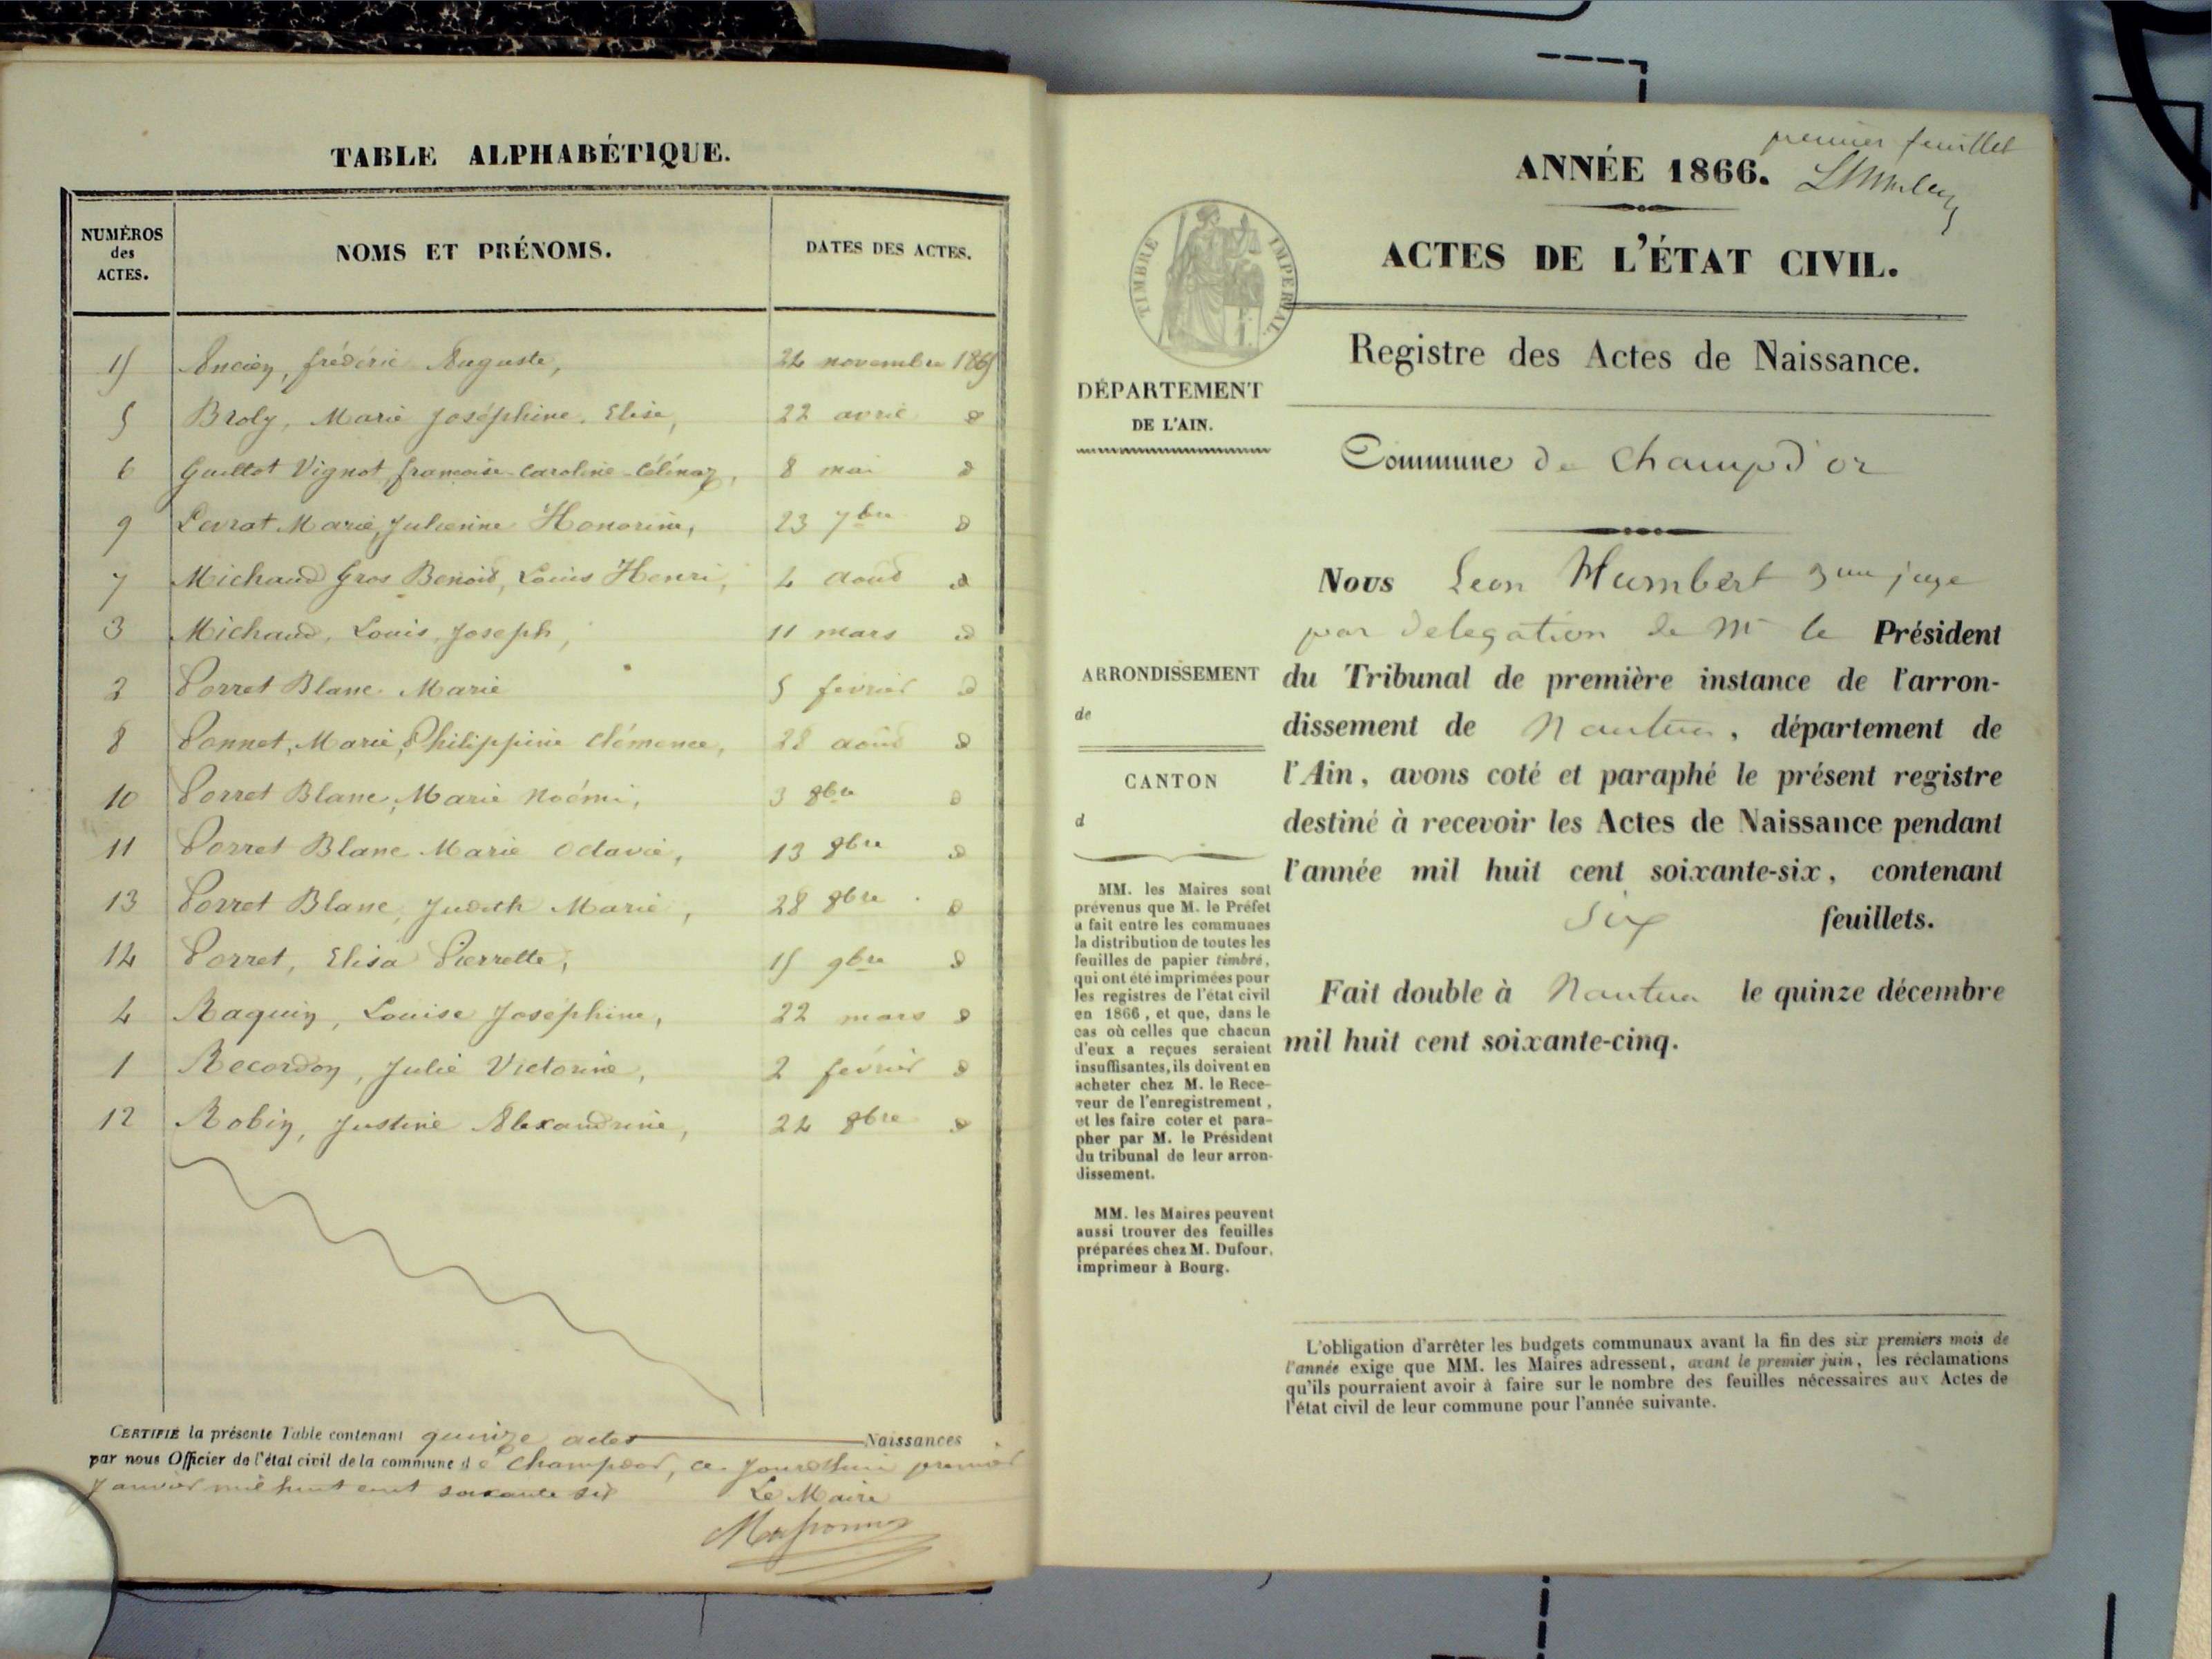 TABLE ALPHABÉTIQUE.
NUMÉROS des ACTES.
NOMS ET PRÉNOMS.
DATES DES ACTES.
15 Ancien, frédéric Auguste, 24 novembre 1865
5 Broly, Marie Joséphine Elise, 22 avril d
6 Guillot Vignot françoise Caroline Célinaz, 8 mai d
9 Levrat Marie, Julienne Honorine, 23 7bre d
7 Michaud Gros Benoid, Louis Henri, 4 aoûd d
3 Michaud, Louis Joseph, 11 mars d
2 Porret Blanc Marie 5 février d
8 Ponnet, Marie Philippine Clémence, 28 aoûd d
10 Porret Blanc, Marie Noémi, 3 8bre d
11 Porret Blanc Marie Octavie, 13 8bre d
13 Porret Blanc, Judith Marie, 28 8bre d
14 Porret, Elisa Pierrette, 15 9bre d
4 Raquin, Louise Joséphine, 22 mars d
1 Recordon, Julie Victorine, 2 février d
12 Robin, Justine Alexandrine, 24 8bre d
CERTIFIÉ la présente Table contenant quinze actes Naissances
par nous Officier de l'état civil de la commune de Champdor, ce jourdhui premier
Janvier mil huit cent soixante six
Le Maire
premier feuillet
ANNÉE 1866.
ACTES DE L'ÉTAT CIVIL.
TIMBRE IMPERIAL
Registre des Actes de Naissance.
DÉPARTEMENT
DE L'AIN.
Commune de Champd'or
ARRONDISSEMENT
de
CANTON
d
MM. les Maires sont
prévenus que M. le Préfet
a fait entre les communes
la distribution de toutes les
feuilles de papier timbré,
qui ont été imprimées pour
les registres de l'état civil
en 1866, et que, dans le
cas où celles que chacun
d'eux a reçues seraient
insuffisantes, ils doivent en
acheter chez M. le Rece-
veur de l'enregistrement,
et les faire coter et para-
pher par M. le Président
du tribunal de leur arron-
dissement.
MM. les Maires peuvent
aussi trouver des feuilles
préparées chez M. Dufour,
imprimeur à Bourg.
Nous Leon Humbert juge
par delegation de Mr le Président
du Tribunal de première instance de l'arron-
dissement de Nantua, département de
l'Ain, avons coté et paraphé le présent registre
destiné à recevoir les Actes de Naissance pendant
l'année mil huit cent soixante-six, contenant
six feuillets.
Fait double à Nantua le quinze décembre
mil huit cent soixante-cinq.
L'obligation d'arrêter les budgets communaux avant la fin des six premiers mois de
l'année exige que MM. les Maires adressent, avant le premier juin, les réclamations
qu'ils pourraient avoir à faire sur le nombre des feuilles nécessaires aux Actes de
l'état civil de leur commune pour l'année suivante.